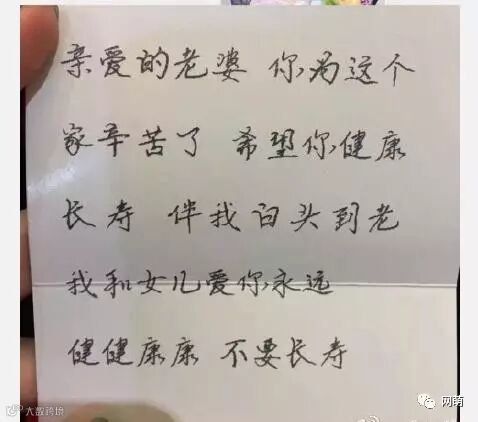 亲爱的老婆 你为这个
家辛苦了 希望你健康
长寿 伴我白头到老
我和女儿爱你永远
健健康康 不要长寿
网萌
大数跨境